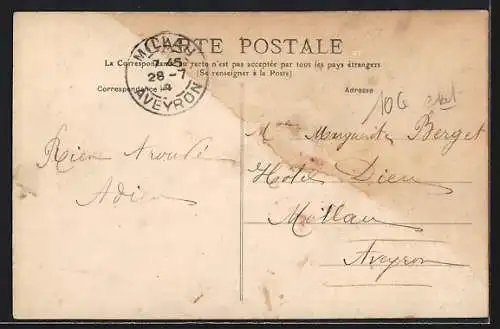 CARTE POSTALE
La Correspondance au recto n'est pas acceptée par tous les pays étrangers
(Se renseigner à la Poste)
MILLAU
7-45
28-7
14
AVEYRON
Correspondance
Adresse
106
Rien trouvé
Adieu
Mme Marguerite Berget
Hotel Dieu
Millau
Aveyron